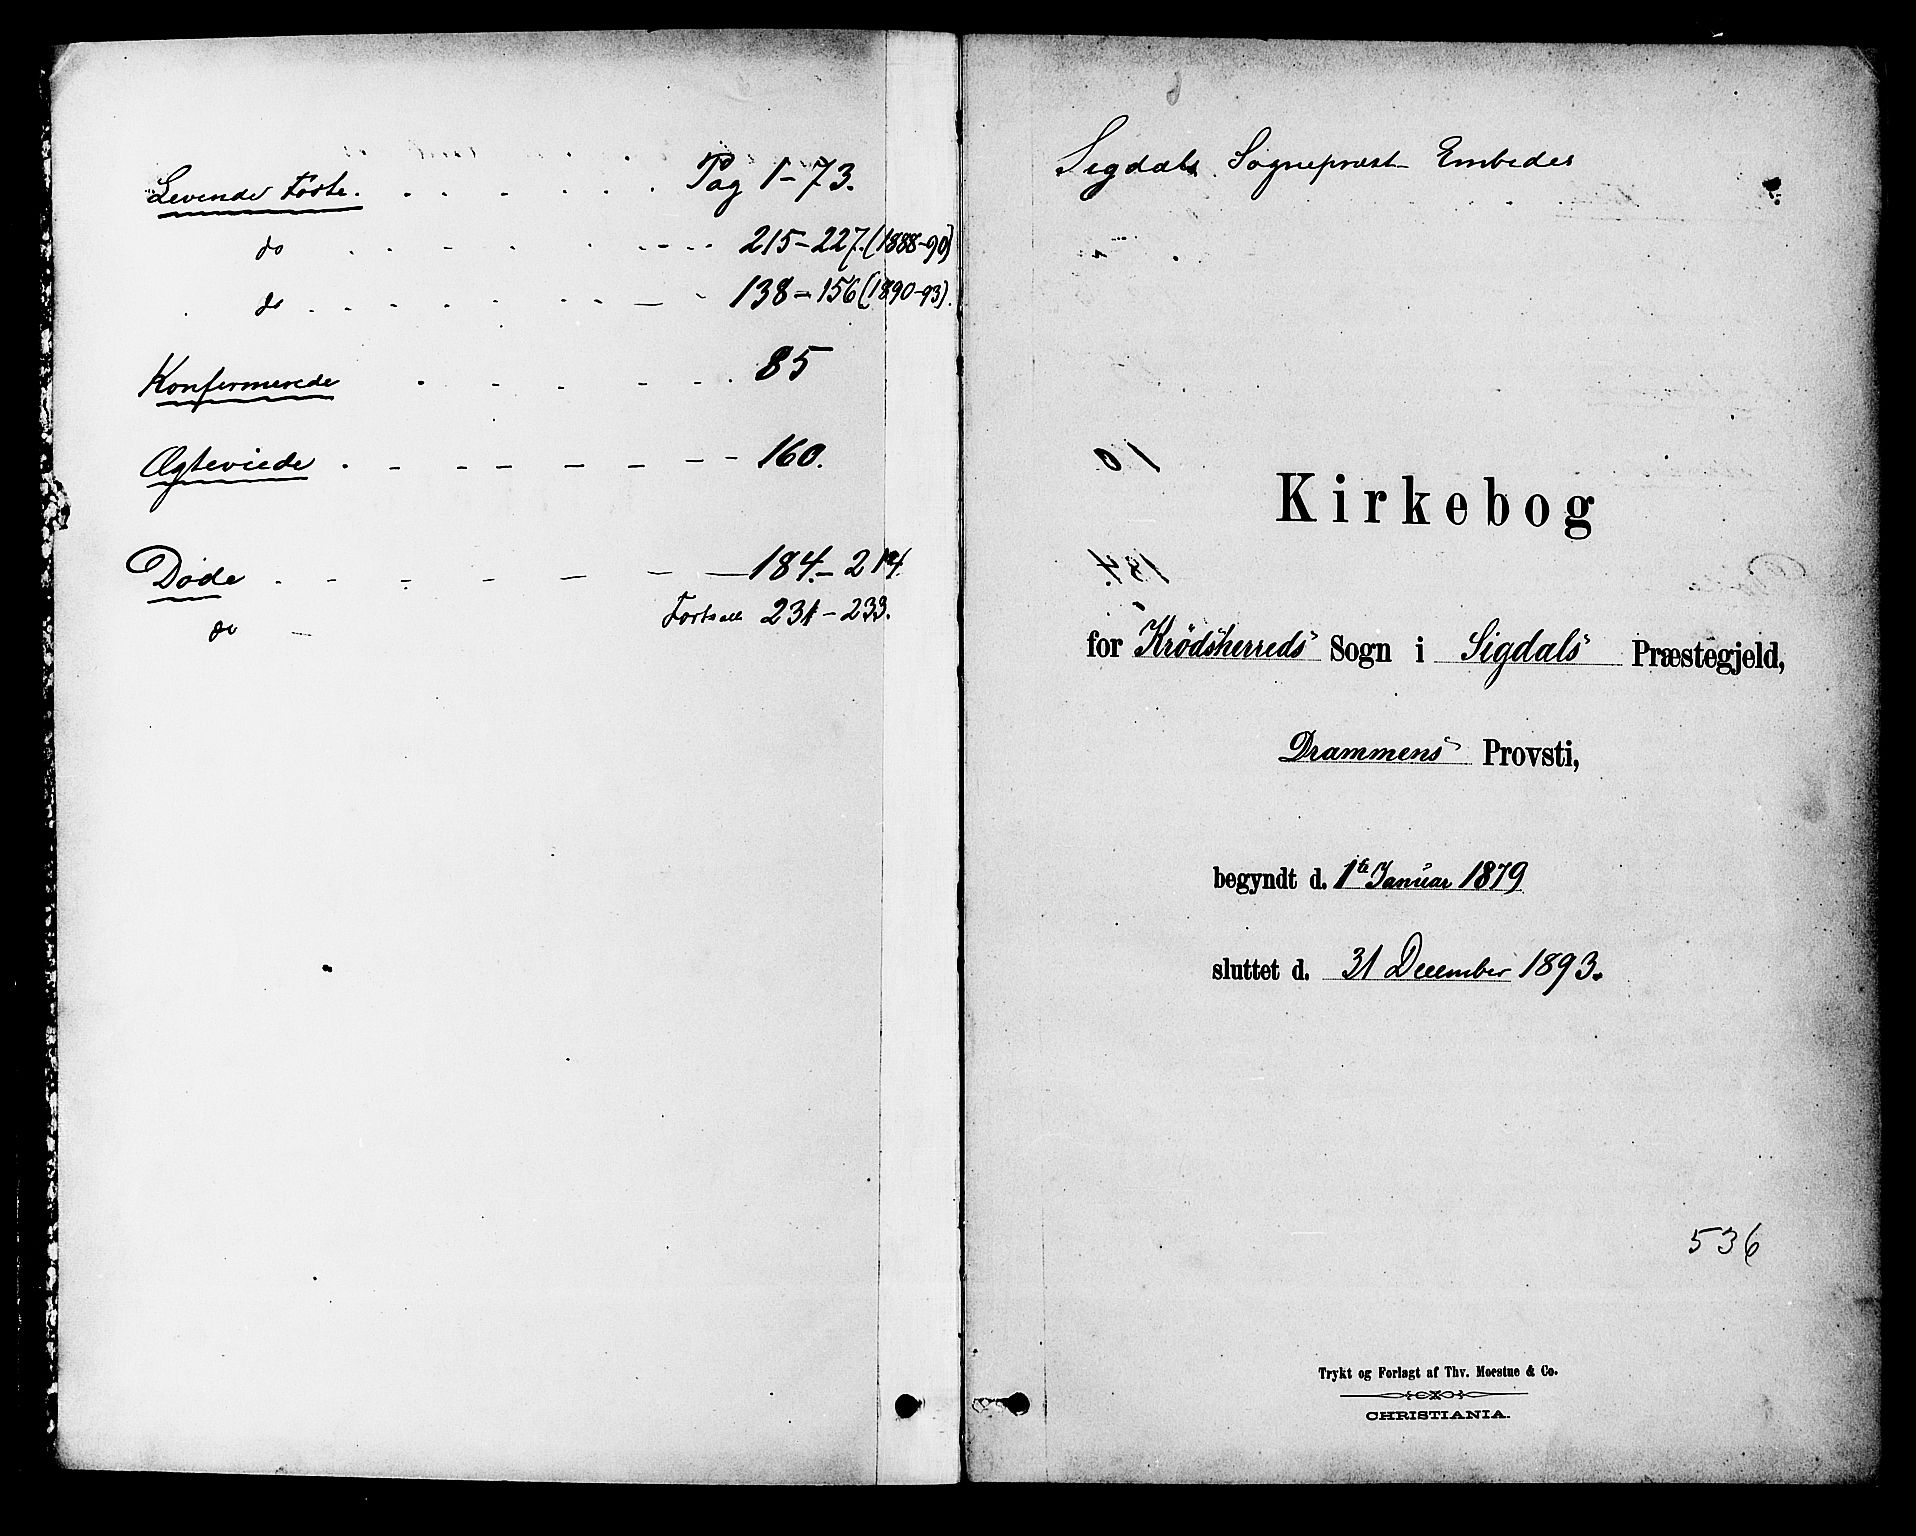 Levende Føste. Pag 1-73.
do 215-227. (1888-90)
do 138-156 (1890-93).
Konfirmerede 85
Ægteviede 160.
Døde 184.-214.
do Fortsatt 231-233.
Sigdals Sognepræst Embedes
Kirkebog
for Krødsherreds Sogn i Sigdals Præstegjeld,
Drammens Provsti,
begyndt d. 1ste Januar 1879
sluttet d. 31 December 1893.
536
Trykt og Forlagt af Thv. Moestue & Co.
CHRISTIANIA.